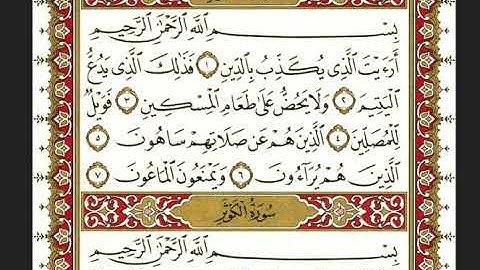 بِسْمِ ٱللَّهِ ٱلرَّحْمَٰنِ ٱلرَّحِيمِ
أَرَءَيْتَ ٱلَّذِى يُكَذِّبُ بِٱلدِّينِ ١ فَذَٰلِكَ ٱلَّذِى يَدُعُّ
ٱلْيَتِيمَ ٢ وَلَا يَحُضُّ عَلَىٰ طَعَامِ ٱلْمِسْكِينِ ٣ فَوَيْلٌ
لِّلْمُصَلِّينَ ٤ ٱلَّذِينَ هُمْ عَن صَلَاتِهِمْ سَاهُونَ ٥
ٱلَّذِينَ هُمْ يُرَآءُونَ ٦ وَيَمْنَعُونَ ٱلْمَاعُونَ ٧
سُورَةُ ٱلْكَوْثَرِ
بِسْمِ ٱللَّهِ ٱلرَّحْمَٰنِ ٱلرَّحِيمِ